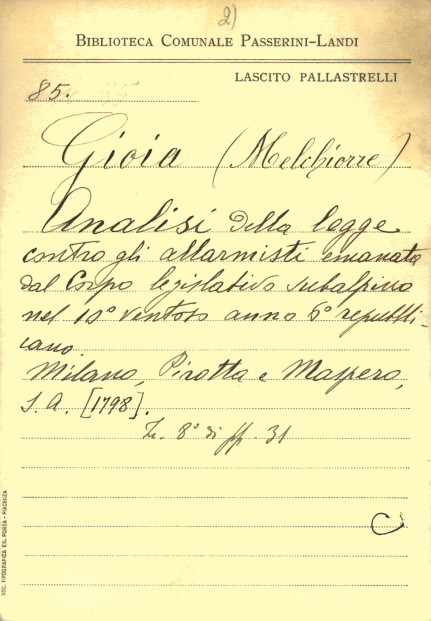 2)
BIBLIOTECA COMUNALE PASSERINI-LANDI
LASCITO PALLASTRELLI
85.
Gioia (Melchiorre)
Analisi della legge
contro gli allarmisti emanata
dal Corpo legislativo subalpino
nel 10° ventoso anno 6° repubbli-
cano.
Milano, Pirotta e Maspero,
S. A. [1798].
In 8° di pp. 31
C
SOC. TIPOGRAFICA ED. PORTA - PIACENZA